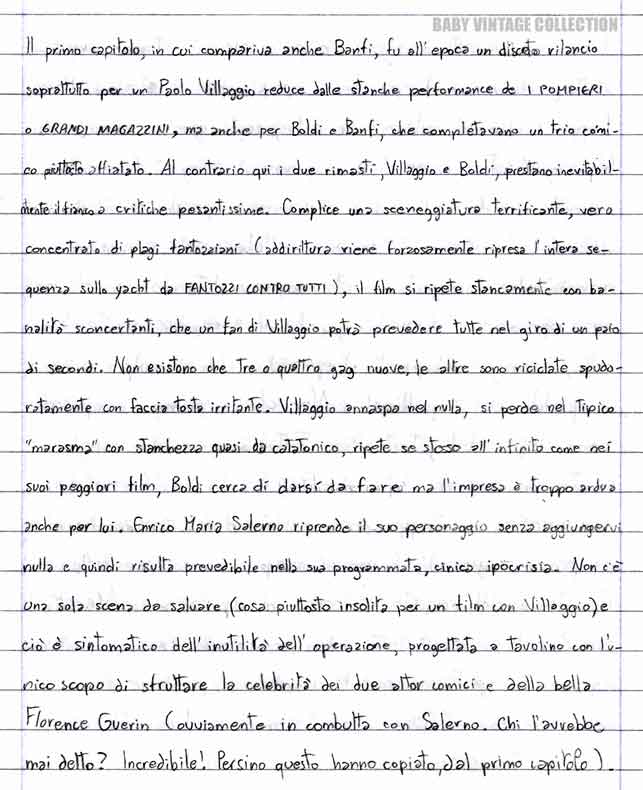 BABY VINTAGE COLLECTION
Il primo capitolo, in cui compariva anche Banfi, fu all'epoca un discreto rilancio
soprattutto per un Paolo Villaggio reduce dalle stanche performance de I POMPIERI
o GRANDI MAGAZZINI, ma anche per Boldi e Banfi, che completavano un trio comi-
co piuttosto affiatato. Al contrario qui i due rimasti, Villaggio e Boldi, prestano inevitabil-
mente il fianco a critiche pesantissime. Complice una sceneggiatura terrificante, vero
concentrato di plagi fantozziani (addirittura viene forzosamente ripresa l'intera se-
quenza sullo yacht da FANTOZZI CONTRO TUTTI), il film si ripete stancamente con ba-
nalità sconcertanti, che un fan di Villaggio potrà prevedere tutte nel giro di un paio
di secondi. Non esistono che tre o quattro gag nuove, le altre sono riciclate spudo-
ratamente con faccia tosta irritante. Villaggio annaspa nel nulla, si perde nel tipico
"marasma" con stanchezza quasi da catatonico, ripete se stesso all'infinito come nei
suoi peggiori film, Boldi cerca di darsi da fare ma l'impresa è troppo ardua
anche per lui. Enrico Maria Salerno riprende il suo personaggio senza aggiungervi
nulla e quindi risulta prevedibile nella sua programmata, cinica ipocrisia. Non c'è
una sola scena da salvare (cosa piuttosto insolita per un film con Villaggio) e
ciò è sintomatico dell'inutilità dell'operazione, progettata a tavolino con l'u-
nico scopo di sfruttare la celebrità dei due attor comici e della bella
Florence Guerin (ovviamente in combutta con Salerno. Chi l'avrebbe
mai detto? Incredibile! Persino questo hanno copiato, dal primo capitolo).